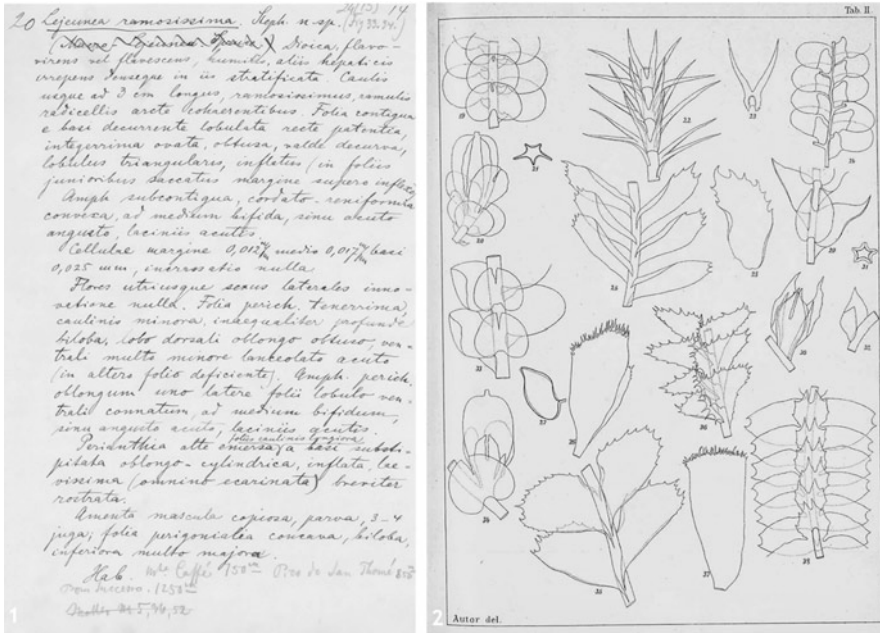 20 Lejeunea ramosissima. Steph. n. sp. 14
(fig 33.34.)
Dioica, flavo-
virens vel flavescens, humilis, aliis hepaticis
irrepens denseque in iis stratificata. Caulis
usque ad 3 cm longus, ramosissimus, ramulis
radicellis arcte cohaerentibus. Folia contigua
e basi decurrente lobulata recte patentia,
integerrima ovata, obtusa, valde decurva,
lobulus triangularis, inflatus (in foliis
junioribus saccatus margine supero inflexo
Amph subcontigua, cordato-reniformia
convexa, ad medium bifida, sinu acuto
angusto, laciniis acutis.
Cellulae margine 0,012 medio 0,017 basi
0,025 mm, incrassatio nulla.
Flores utriusque sexus laterales inno-
vatione nulla. Folia perich. tenerrima,
caulinis minora, inaequaliter profunde
biloba, lobo dorsali oblongo obtuso, ven-
trali multo minore lanceolato acuto
(in altero folio deficiente). Amph. perich.
oblongum uno latere folii lobulo ven-
trali connatum, ad medium bifidum,
sinu angusto acuto, laciniis acutis.
foliis caulinis longiora
Perianthia alte emersa a basi substi-
pitata oblongo-cylindrica, inflata, lae-
vissima (omnino ecarinata) breviter
rostrata.
Amenta mascula copiosa, parva, 3-4
juga; folia perigonialia concava, biloba,
inferiora multo majora.
Hab. Mte Caffé 750m Pico de San Thomé
1250m
Moller No 5, 36, 52
1
Tab. II.
19
22
23
24
21
20
26
25
30
31
33
30
32
27
28
36
34
35
37
38
2 Autor del.